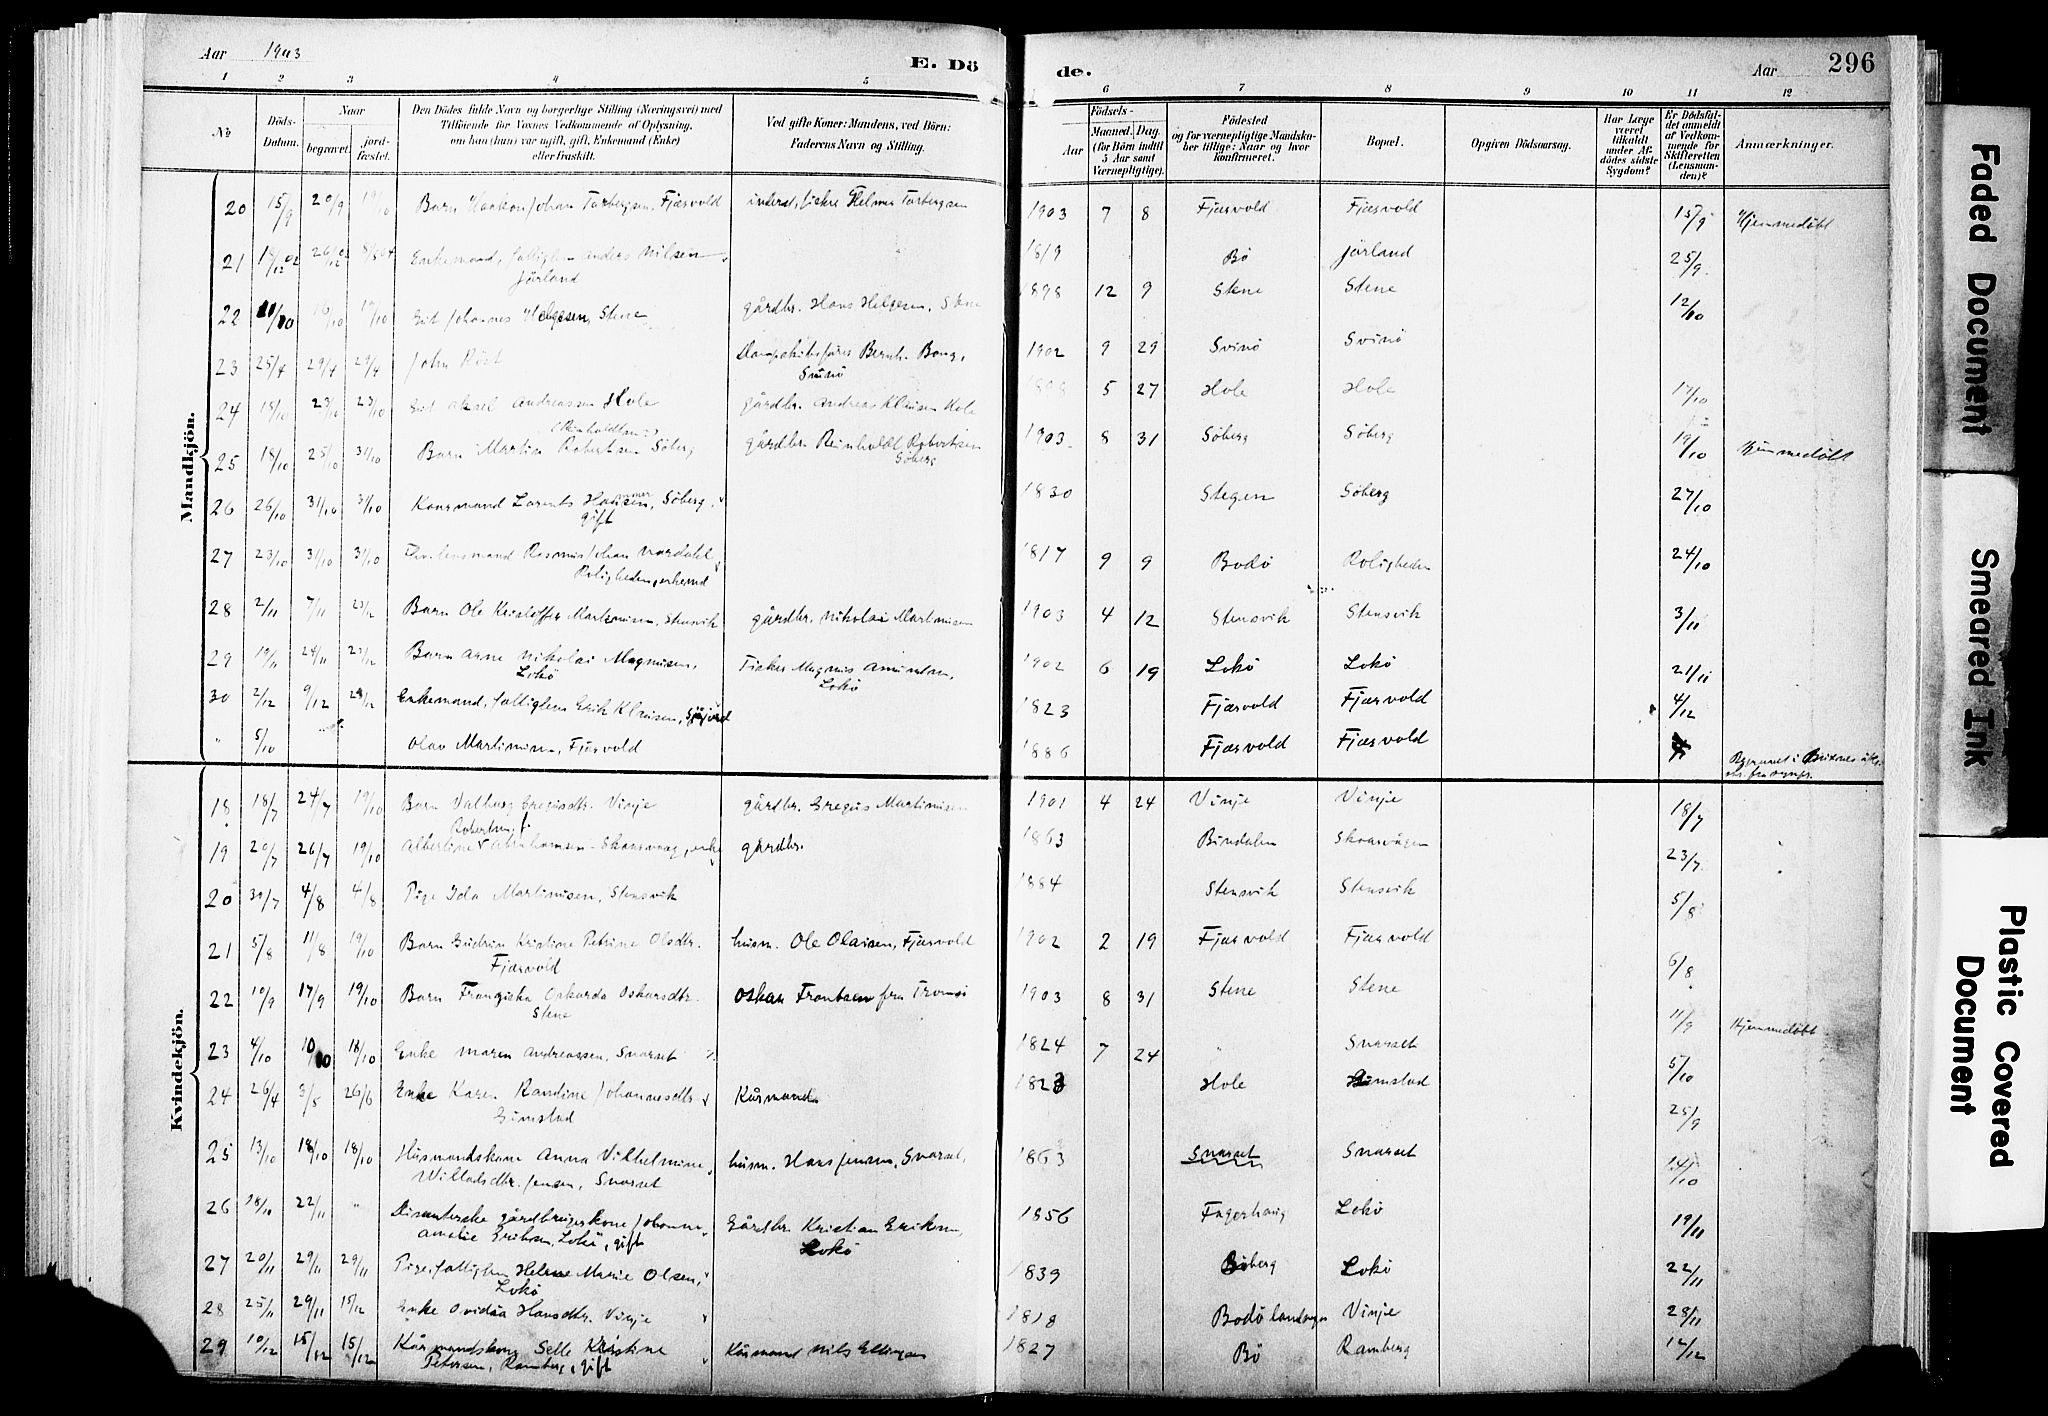 Aar 1903
E. Dö
de.
Aar
296
1 2 3 4 5
6 7 8 9 10 11 12
No
Döds-Datum.
Naar
begravet.
jord-fæstet.
Den Dödes fulde Navn og borgerlige Stilling (Næringsvei) med
Tilföiende for Voxnes Vedkommende af Oplysning,
om han (hun) var ugift, gift, Enkemand (Enke)
eller fraskilt.
Ved gifte Koner: Mandens, ved Börn:
Faderens Navn og Stilling.
Aar
Födsels-
Maaned. Dag.
(for Börn indtil
5 Aar samt
Værnepligtige).
Födested
og for værnepligtige Mandska-
ber tillige: Naar og hvor
konfirmeret.
Bopæl.
Opgiven Dödsaarsag.
Har Læge
været
tilkaldt
under Af-
dödes sidste
Sygdom?
Er Dödsfal-
det anmeldt
af Vedkom-
mende for
Skifteretten
(Lensman-
den)?
Anmærkninger.
Mandkjön.
20 15/9 20/9 19/10 Barn Haakon Johan Torbergsen, Fjærvold Helmer Torbergsen 1903 7 8 Fjærvold Fjærvold 15/9 Hjemmedøbt
21 26/12 02 Enkemand, fattiglem Anders Nilsen Jörland 1819 Bø Jörland 25/9
22 16/10 19/10 Johannes Helgesen, Stene gårdbr. Hans Helgesen, Stene 1898 12 9 Stene Stene 12/10
23 25/4 29/4 29/4 John Röst Bernh. Svinö 1902 9 29 Svinö Svinö
24 23/10 23/10 Aksel Andreassen Hole gårdbr. Andreas Klausen Hole 5 27 Hole Hole 17/10
25 18/10 25/10 31/10 Barn Martin Robertsen Söberg gårdbr. Reinholdt Robertsen Söberg 1903 8 31 Söberg Söberg 19/10 Hjemmedøbt
26 26/10 31/10 31/10 Laurents Söberg, gift 1830 Stegen Söberg 27/10
27 23/10 31/10 31/10 Rasmus Johan Nordahl Roligheden, enkemd 1817 9 9 Bodö Roligheden 24/10
28 2/11 7/11 Barn Ole Kristoffer Martinusen, Stensvik gårdbr. Nikolai Martinusen 1903 4 12 Stensvik Stensvik 3/11
29 19/11 24/11 Barn Arne Nikolai Magnusen, Lokö Fisker Magnus Amundsen, Lokö 1902 6 19 Lokö Lokö 21/11
30 2/12 9/12 Enkemand, fattiglem Erik Klausen, 1823 Fjærvold Fjærvold 4/12
" 5/10 Olav Martinusen, Fjærvold 1886 Fjærvold Fjærvold
Kvindekjön.
18 18/7 24/7 19/10 Barn Valborg Gregusdtr. Vinje gårdbr. Gregus Martinusen 1901 4 24 Vinje Vinje 18/7
19 20/7 26/7 19/10 Albertine Abrahamsen Skaarvaag, enke gårdbr. 1863 Bindalen Skaarvågen 23/7
20 30/7 4/8 4/8 Pige Ida Martinusen, Stensvik 1884 Stensvik Stensvik 5/8
21 5/8 11/8 19/10 Barn Gudrun Kristine Petrine Olsdtr. Fjærvold husm. Ole Olaisen, Fjærvold 1902 2 19 Fjærvold Fjærvold 6/8
22 10/9 17/9 19/10 Barn Frangiska Oskarda Oskarsdtr. Stene Oskar Frantsen fra Tromsö 1903 8 31 Stene Stene 11/9 Hjemmedøbt
23 4/10 10/10 18/10 Enke Maren Andreassen, Snarset 1824 7 24 " Snarset 5/10
24 26/4 3/5 26/6 Enke Karen Randine Johannesdtr Gimstad Kårmand 1823 Hole Gimstad 25/9
25 13/10 18/10 18/10 Husmandskone Anna Vilhelmine Willadsdtr. Jensen, Snarset husm. Hans Jensen, Snarset, 1863 Snarset Snarset 14/10
26 18/11 22/11 " Dissenterske gårdbrugerkone Johanna Amalie Eriksen, Lokö, gift Gårdbr. Kristian Eriksen, Lokö 1856 Fagerhaug Lokö 19/11
27 20/11 29/11 29/11 Pige, fattiglem Helene Marie Olsen, Lokö 1839 Söberg Lokö 22/11
28 25/11 29/11 15/12 Enke Ovidia Hansdtr. Vinje 1818 Bodö landsogn Vinje 28/11
29 10/12 15/12 15/12 Kårmandskone Selle Kristine Petersen, Ramberg, gift Kårmand Nils Ellingsen 1827 Bö Ramberg 14/12
Faded Document
Smeared Ink
Plastic Covered
Document